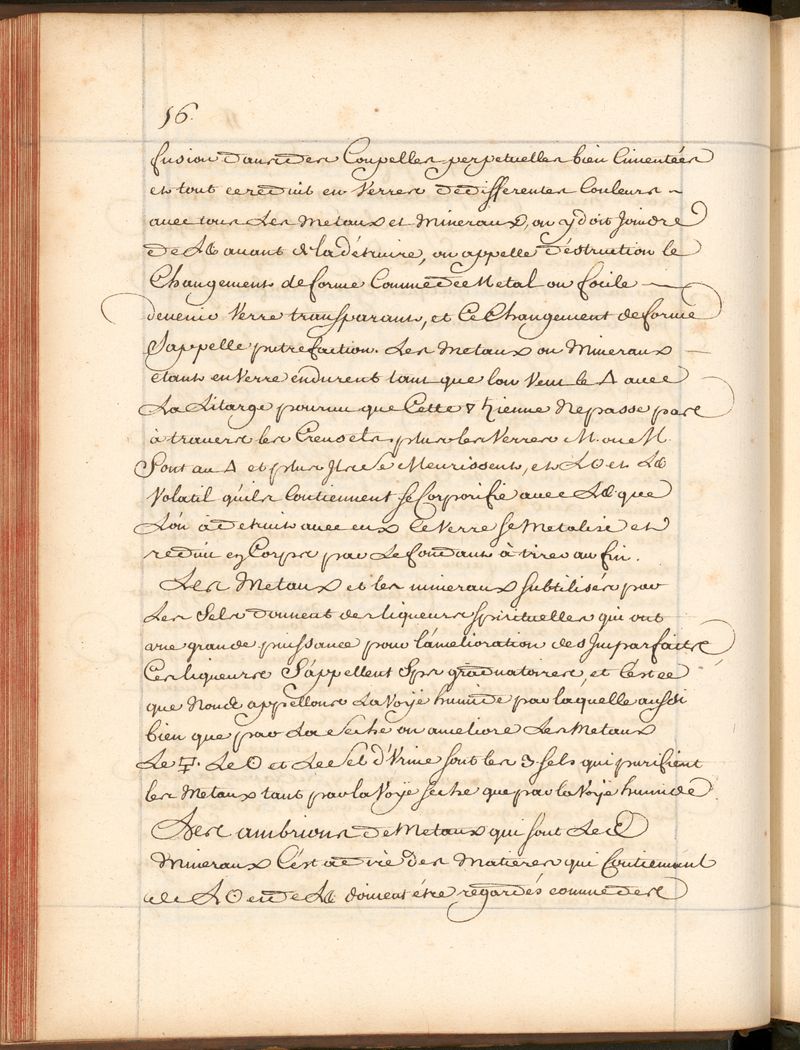 16.
fusion dans des Coupelles perpetuelles bien Cimentées
et tout ce reduit en Verres de differentes Couleurs ~
avec tous Les Metaux et Mineraux, on y doit Joindre
de L avant de la détruire, on appelle déstruction le
Changement de forme Comme de ce Metal ou focile
devenir Verre transparant, et Ce Changement de forme
S'appelle putrefaction. Les Metaux ou Mineraux
étans en Verre endurent tant que lon Veut le △ avec
La Litarge pourvu que Cette ▽ ♄ienne Ne passe pas
à travers les Creusets plus les Verres M. ou M.
Sont au △ et plus Ils se Meurissent, et L☉ et L
Volatil qu'ils Contiennent se Corporifie avec L que
Lón à détruit avec eux Le Verre se Metalise et
reduit en Corps par Le fondant à tirer au fin.
Les Metaux et les mineraux subtilisés par
Les Sels donnent des liqueurs spirituelles qui ont
une grande puissance pour l'amelioration des Imparfaits
Ces liqueurs S'appellent Sps graduatoires, et C'est ce
que Nous appellons La Voÿe humide par laquelle aussi
bien que par La seche on ameliore Les Metaux
Le 🜿. Le ☉ et Le Sel d'Urine sont les 3 sels qui purifient
les Metaux tant par la Voÿe seche que par la Voÿe humide
Les ambrions de Metaux qui sont Les
Mineraux C'est à dire des Matieres qui Contiennent
de L☉ et de L doivent étre regardés comme des